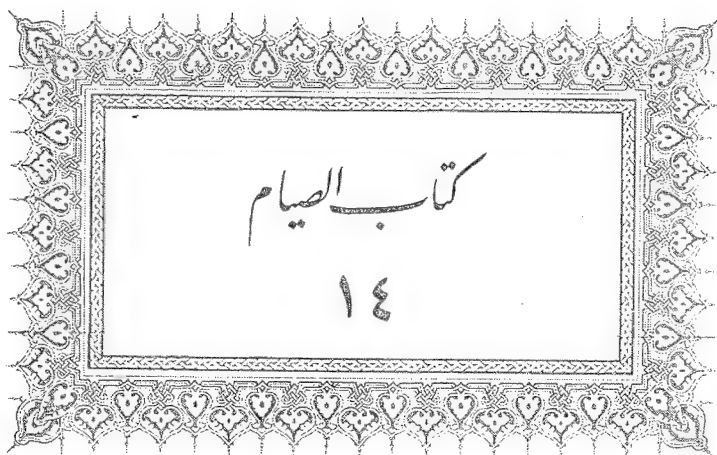 كتاب الصيام
١٤